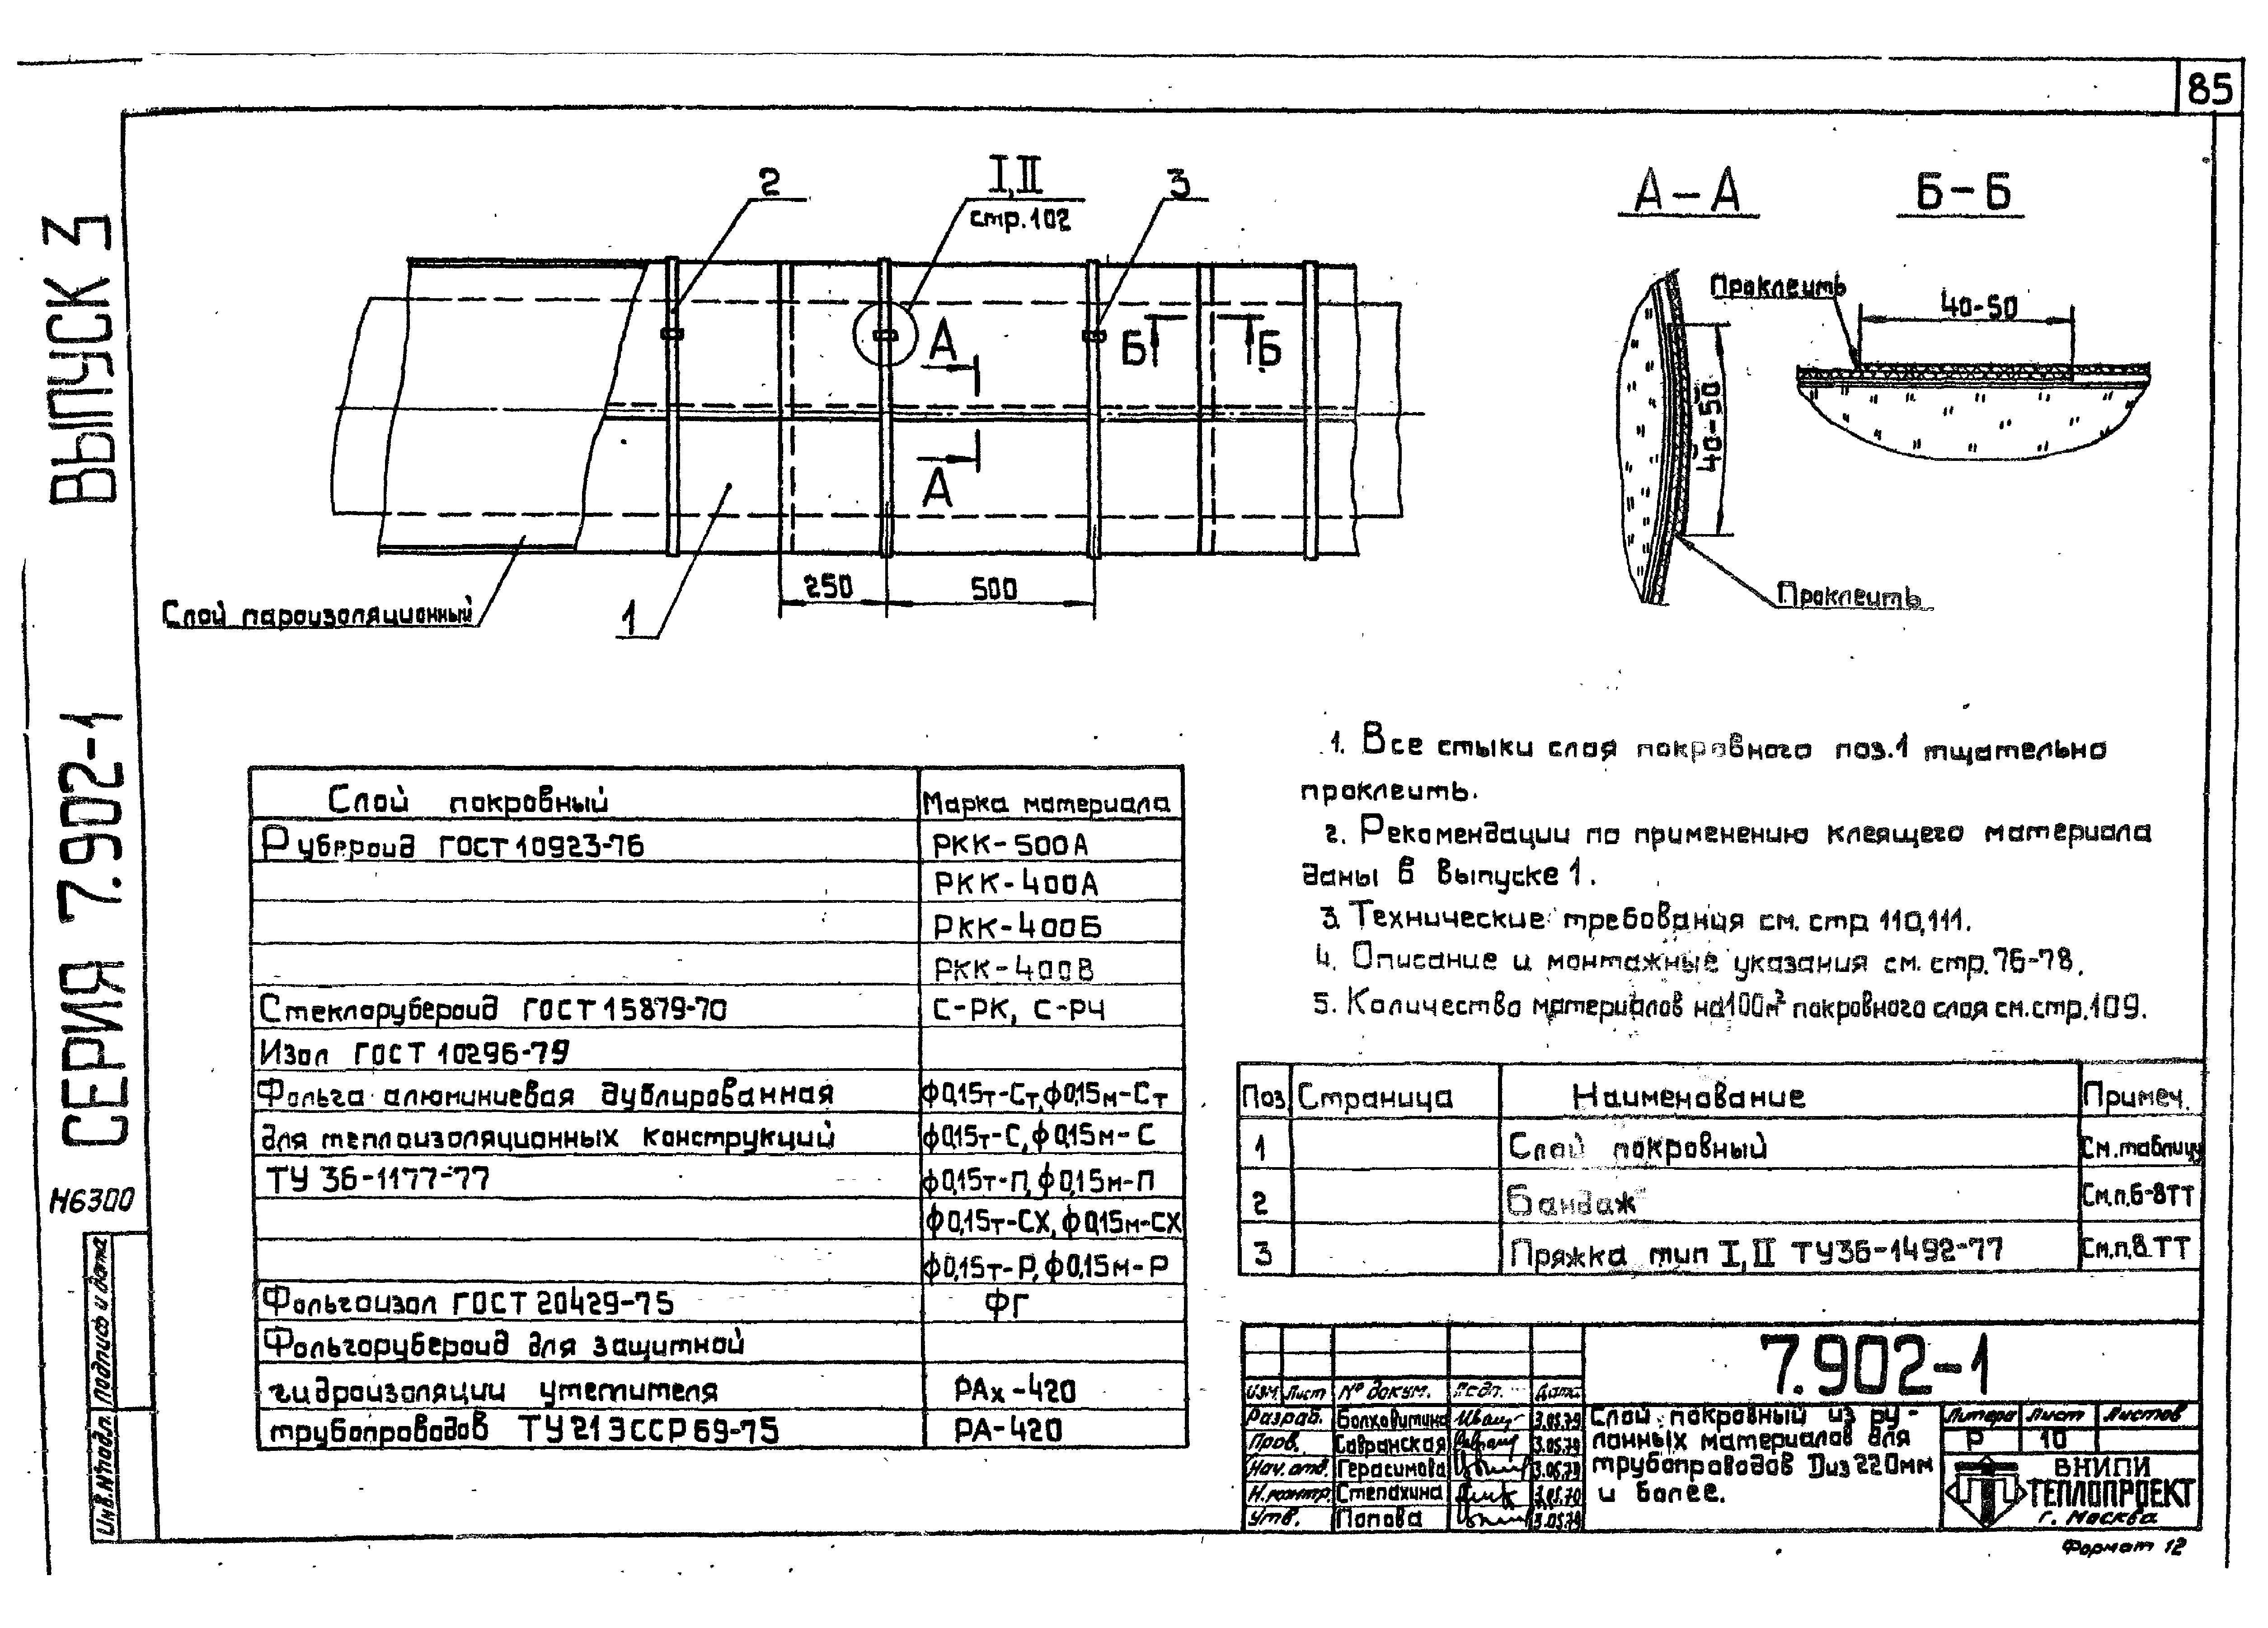 85
ВЫПУСК 3
СЕРИЯ 7.902-1
Н6300
Инв.№подл. Подпись и дата
2
I, II
стр.102
3
А
А
Б
Б
250
500
1
Слой пароизоляционный
А-А
Б-Б
Проклеить
40-50
40-50
Проклеить
1. Все стыки слоя покровного поз.1 тщательно
проклеить.
2. Рекомендации по применению клеящего материала
даны в выпуске 1.
3. Технические требования см. стр. 110,111.
4. Описание и монтажные указания см. стр. 76-78.
5. Количество материалов на 100м² покровного слоя см. стр. 109.
Слой покровный Марка материала
Рубероид ГОСТ 10923-76 РКК-500А
РКК-400А
РКК-400Б
РКК-400В
Стеклорубероид ГОСТ 15879-70 С-РК, С-РЧ
Изол ГОСТ 10296-79
Фольга алюминиевая дублированная ф0,15т-Ст, ф0,15м-Ст
для теплоизоляционных конструкций ф0,15т-С, ф0,15м-С
ТУ 36-1177-77 ф0,15т-П, ф0,15м-П
ф0,15т-СХ, ф0,15м-СХ
ф0,15т-Р, ф0,15м-Р
Фольгоизол ГОСТ 20429-75 ФГ
Фольгорубероид для защитной
гидроизоляции утеплителя РАх-420
трубопроводов ТУ 21 ЭССР 69-75 РА-420
Поз Страница Наименование Примеч.
1 Слой покровный См. таблицу
2 Бандаж См.п.6-8ТТ
3 Пряжка тип I, II ТУ36-1492-77 См.п.8 ТТ
7.902-1
Изм. Лист № докум. Подп. Дата
Разраб. Болховитина 3.05.79
Пров. Савранская 3.05.79
Нач. отд. Герасимова 3.05.79
Н.контр. Степахина
Утв. Попова 3.05.79
Слой покровный из ру-
лонных материалов для
трубопроводов Dиз 220мм
и более.
Литера Лист Листов
Р 10
ВНИПИ
ТЕПЛОПРОЕКТ
г. Москва
Формат 12